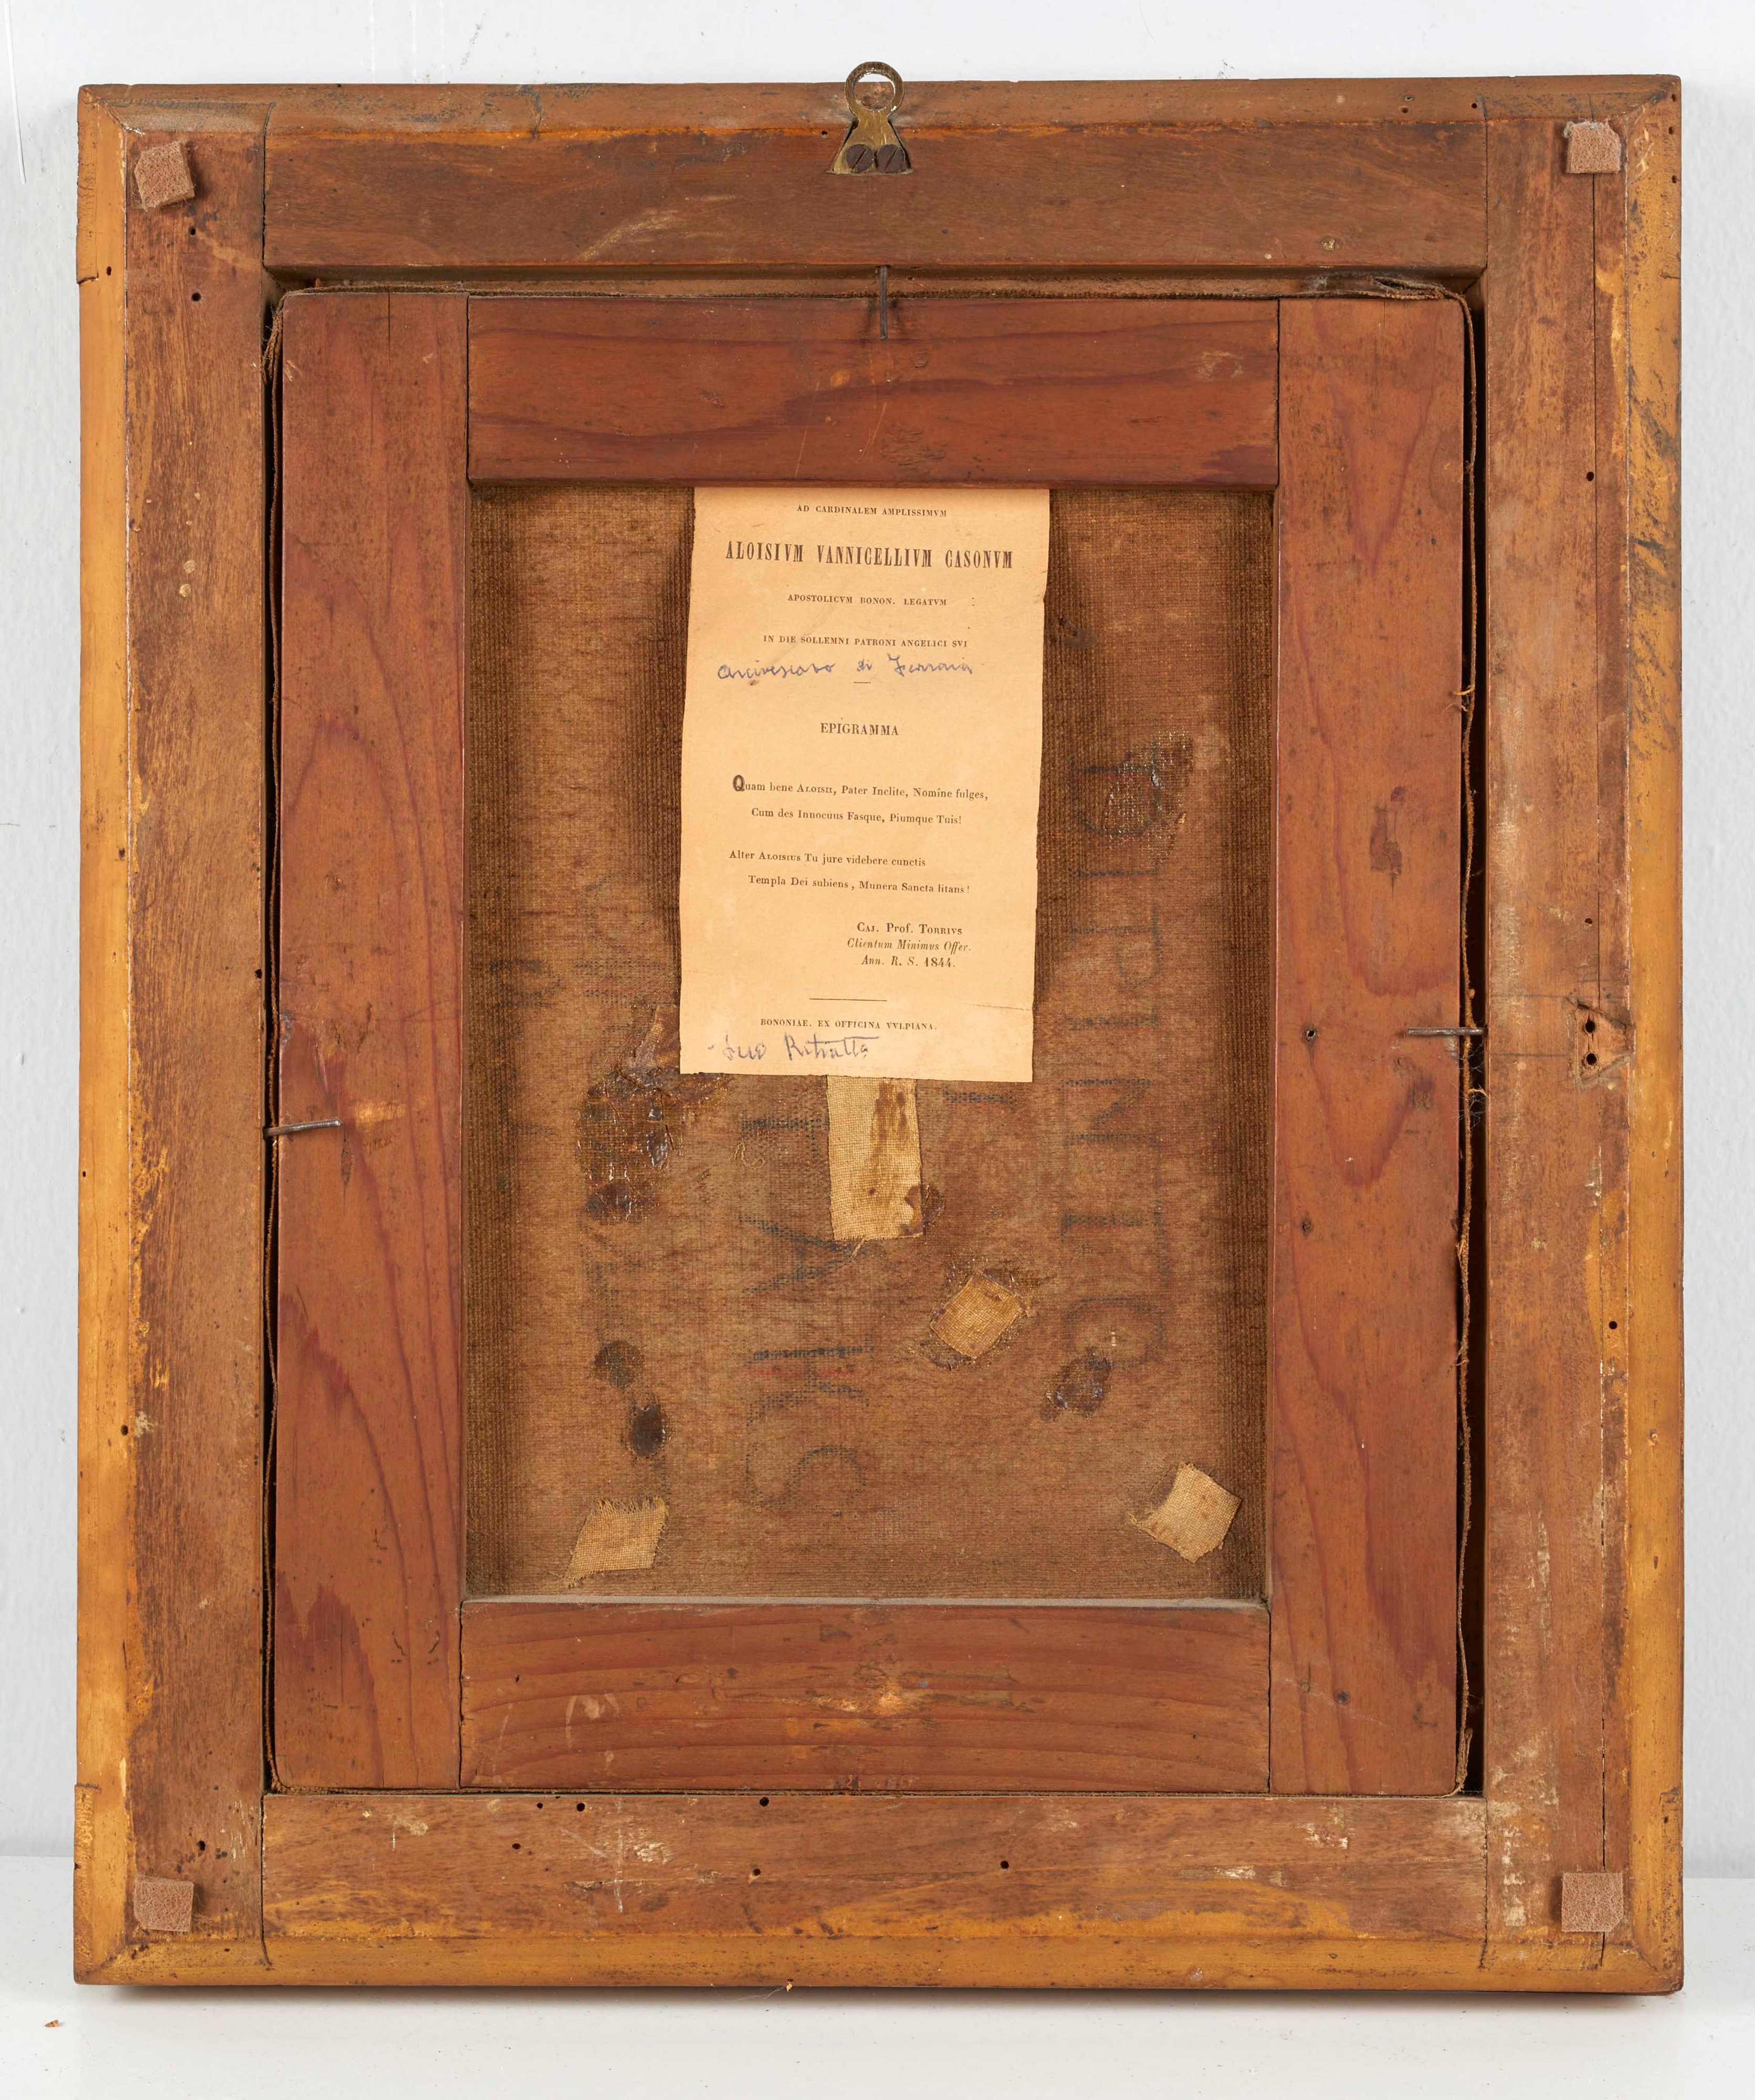 AD CARDINALEM AMPLISSIMVM
ALOISIVM VANNICELLIVM CASONVM
APOSTOLICVM BONON. LEGATVM
IN DIE SOLLEMNI PATRONI ANGELICI SVI
Arcivescovo di Ferrara
EPIGRAMMA
Quam bene ALOISII, Pater Inclite, Nomine fulges,
Cum des Innocuus Fasque, Piumque Tuis!
Alter ALOISIUS Tu jure videbere cunctis
Templa Dei subiens, Munera Sancta litans!
CAJ. Prof. TORRIVS
Clientum Minimus Offer.
Ann. R. S. 1844.
BONONIAE. EX OFFICINA VVLPIANA.
Suo Ritratto